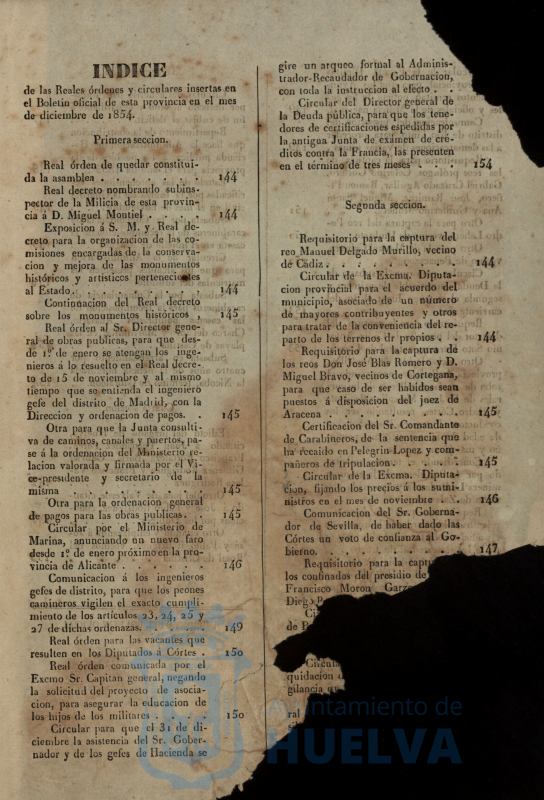 INDICE
de las Reales órdenes y circulares insertas en
el Boletin oficial de esta provincia en el mes
de diciembre de 1854.
Primera seccion.
Real órden de quedar constitui-
da la asamblea . . . . . . 144
Real decreto nombrando subins-
pector de la Milicia de esta provin-
cia á D. Miguel Montiel . . . . 144
Exposicion á S. M. y Real de-
creto para la organizacion de las co-
misiones encargadas de la conserva-
cion y mejora de las monumentos
históricos y artísticos pertenecientes
al Estado. . . . . . . . 144
Continuacion del Real decreto
sobre los monumentos históricos , 145
Real órden al Sr. Director gene-
ral de obras publicas, para que des-
de 1.º de enero se atengan los inge-
nieros á lo resuelto en el Real decre-
to de 15 de noviembre y al mismo
tiempo que se entienda el ingeniero
gefe del distrito de Madrid, con la
Direccion y ordenacion de pagos. . 145
Otra para que la Junta consulti-
va de caminos, canales y puertos, pa-
se á la ordenacion del Ministerio re-
lacion valorada y firmada por el Vi-
ce-presidente y secretario de la
misma . . . . . . . . 145
Otra para la ordenacion general
de pagos para las obras publicas. . 145
Circular por el Ministerio de
Marina, anunciando un nuevo faro
desde 1.º de enero próximo en la pro-
vincia de Alicante . . . . . 146
Comunicacion á los ingenieros
gefes de distrito, para que los peones
camineros vigilen el exacto cumpli-
miento de los artículos 23, 24, 25 y
27 de dichas ordenazas. . . . . 149
Real órden para las vacantes que
resulten en los Diputados á Córtes . 150
Real órden comunicada por el
Excmo Sr. Capitan general, negando
la solicitud del proyecto de asocia-
cion, para asegurar la educacion de
los hijos de los militares . . . . 150
Circular para que el 31 de di-
ciembre la asistencia del Sr. Gober-
nador y de los gefes de Hacienda se
gire un arqueo formal al Adminis-
trador-Recaudador de Gobernacion,
con toda la instruccion al efecto . .
Circular del Director general de
la Deuda pública, para que los tene-
dores de certificaciones espedidas por
la antigua Junta de exámen de cré-
ditos contra la Francia, las presenten
en el término de tres meses . . . 154
Segunda seccion.
Requisitorio para la captura del
reo Manuel Delgado Murillo, vecino
de Cádiz . . . . . . . . 144
Circular de la Excma. Diputa-
cion provincial para el acuerdo del
municipio, asociado de un número
de mayores contribuyentes y otros
para tratar de la conveniencia del re-
parto de los terrenos dr propios . . 144
Requisitorio para la captura de
los reos Don José Blas Romero y D.
Miguel Bravo, vecinos de Cortegana,
para que caso de ser habidos sean
puestos á disposicion del juez de
Aracena . . . . . . . . 145
Certificacion del Sr. Comandante
de Carabineros, de la sentencia que
ha recaido en Pelegrin Lopez y com-
pañeros de tripulacion. . . . . 145
Circular de la Excma. Diputa-
cion, fijando los precios á los sumi-
nistros en el mes de noviembre . . 146
Comunicacion del Sr. Goberna-
dor de Sevilla, de haber dado las
Córtes un voto de confianza al Go-
bierno. . . . . . . . . 147
Requisitorio para la captu
los confinados del presidio de
Francisco Moron Garz
Diego P
Ci
de B
Circula
quidacion
gilancia
ral
Ayuntamiento de
HUELVA